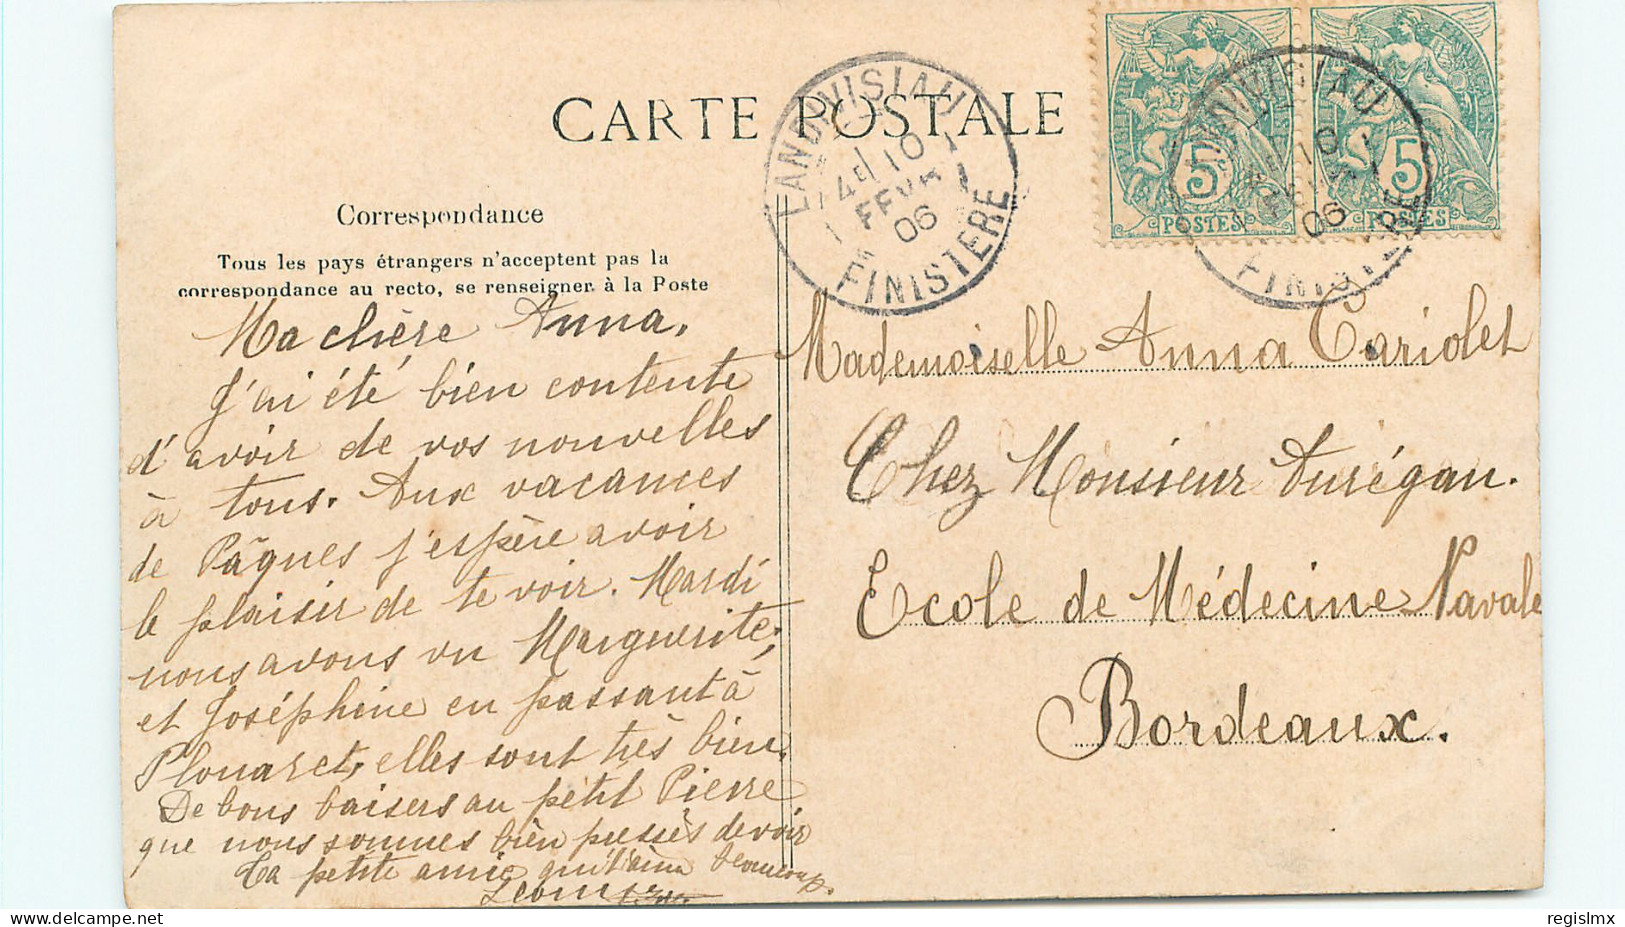 CARTE POSTALE
LANDIVISIAU
10
FEVR
06
FINISTERE
5
POSTES
5
POSTES
LANDIVISIAU
10
06
FINISTERE
Correspondance
Tous les pays étrangers n'acceptent pas la
correspondance au recto, se renseigner à la Poste
Ma chère Anna.
J'ai été bien contente
d'avoir de vos nouvelles
à tous. Aux vacances
de Pâques j'espère avoir
le plaisir de te voir. Mardi
nous avons vu Marguerite,
et Joséphine en passant à
Plouaret, elles sont très bien.
De bons baisers au petit Pierre
que nous sommes bien pressés de voir
Ta petite amie qui t'aime beaucoup.
Mademoiselle Anna Cariolet
Chez Monsieur Aurégan.
Ecole de Médecine Navale
Bordeaux.
regislmx